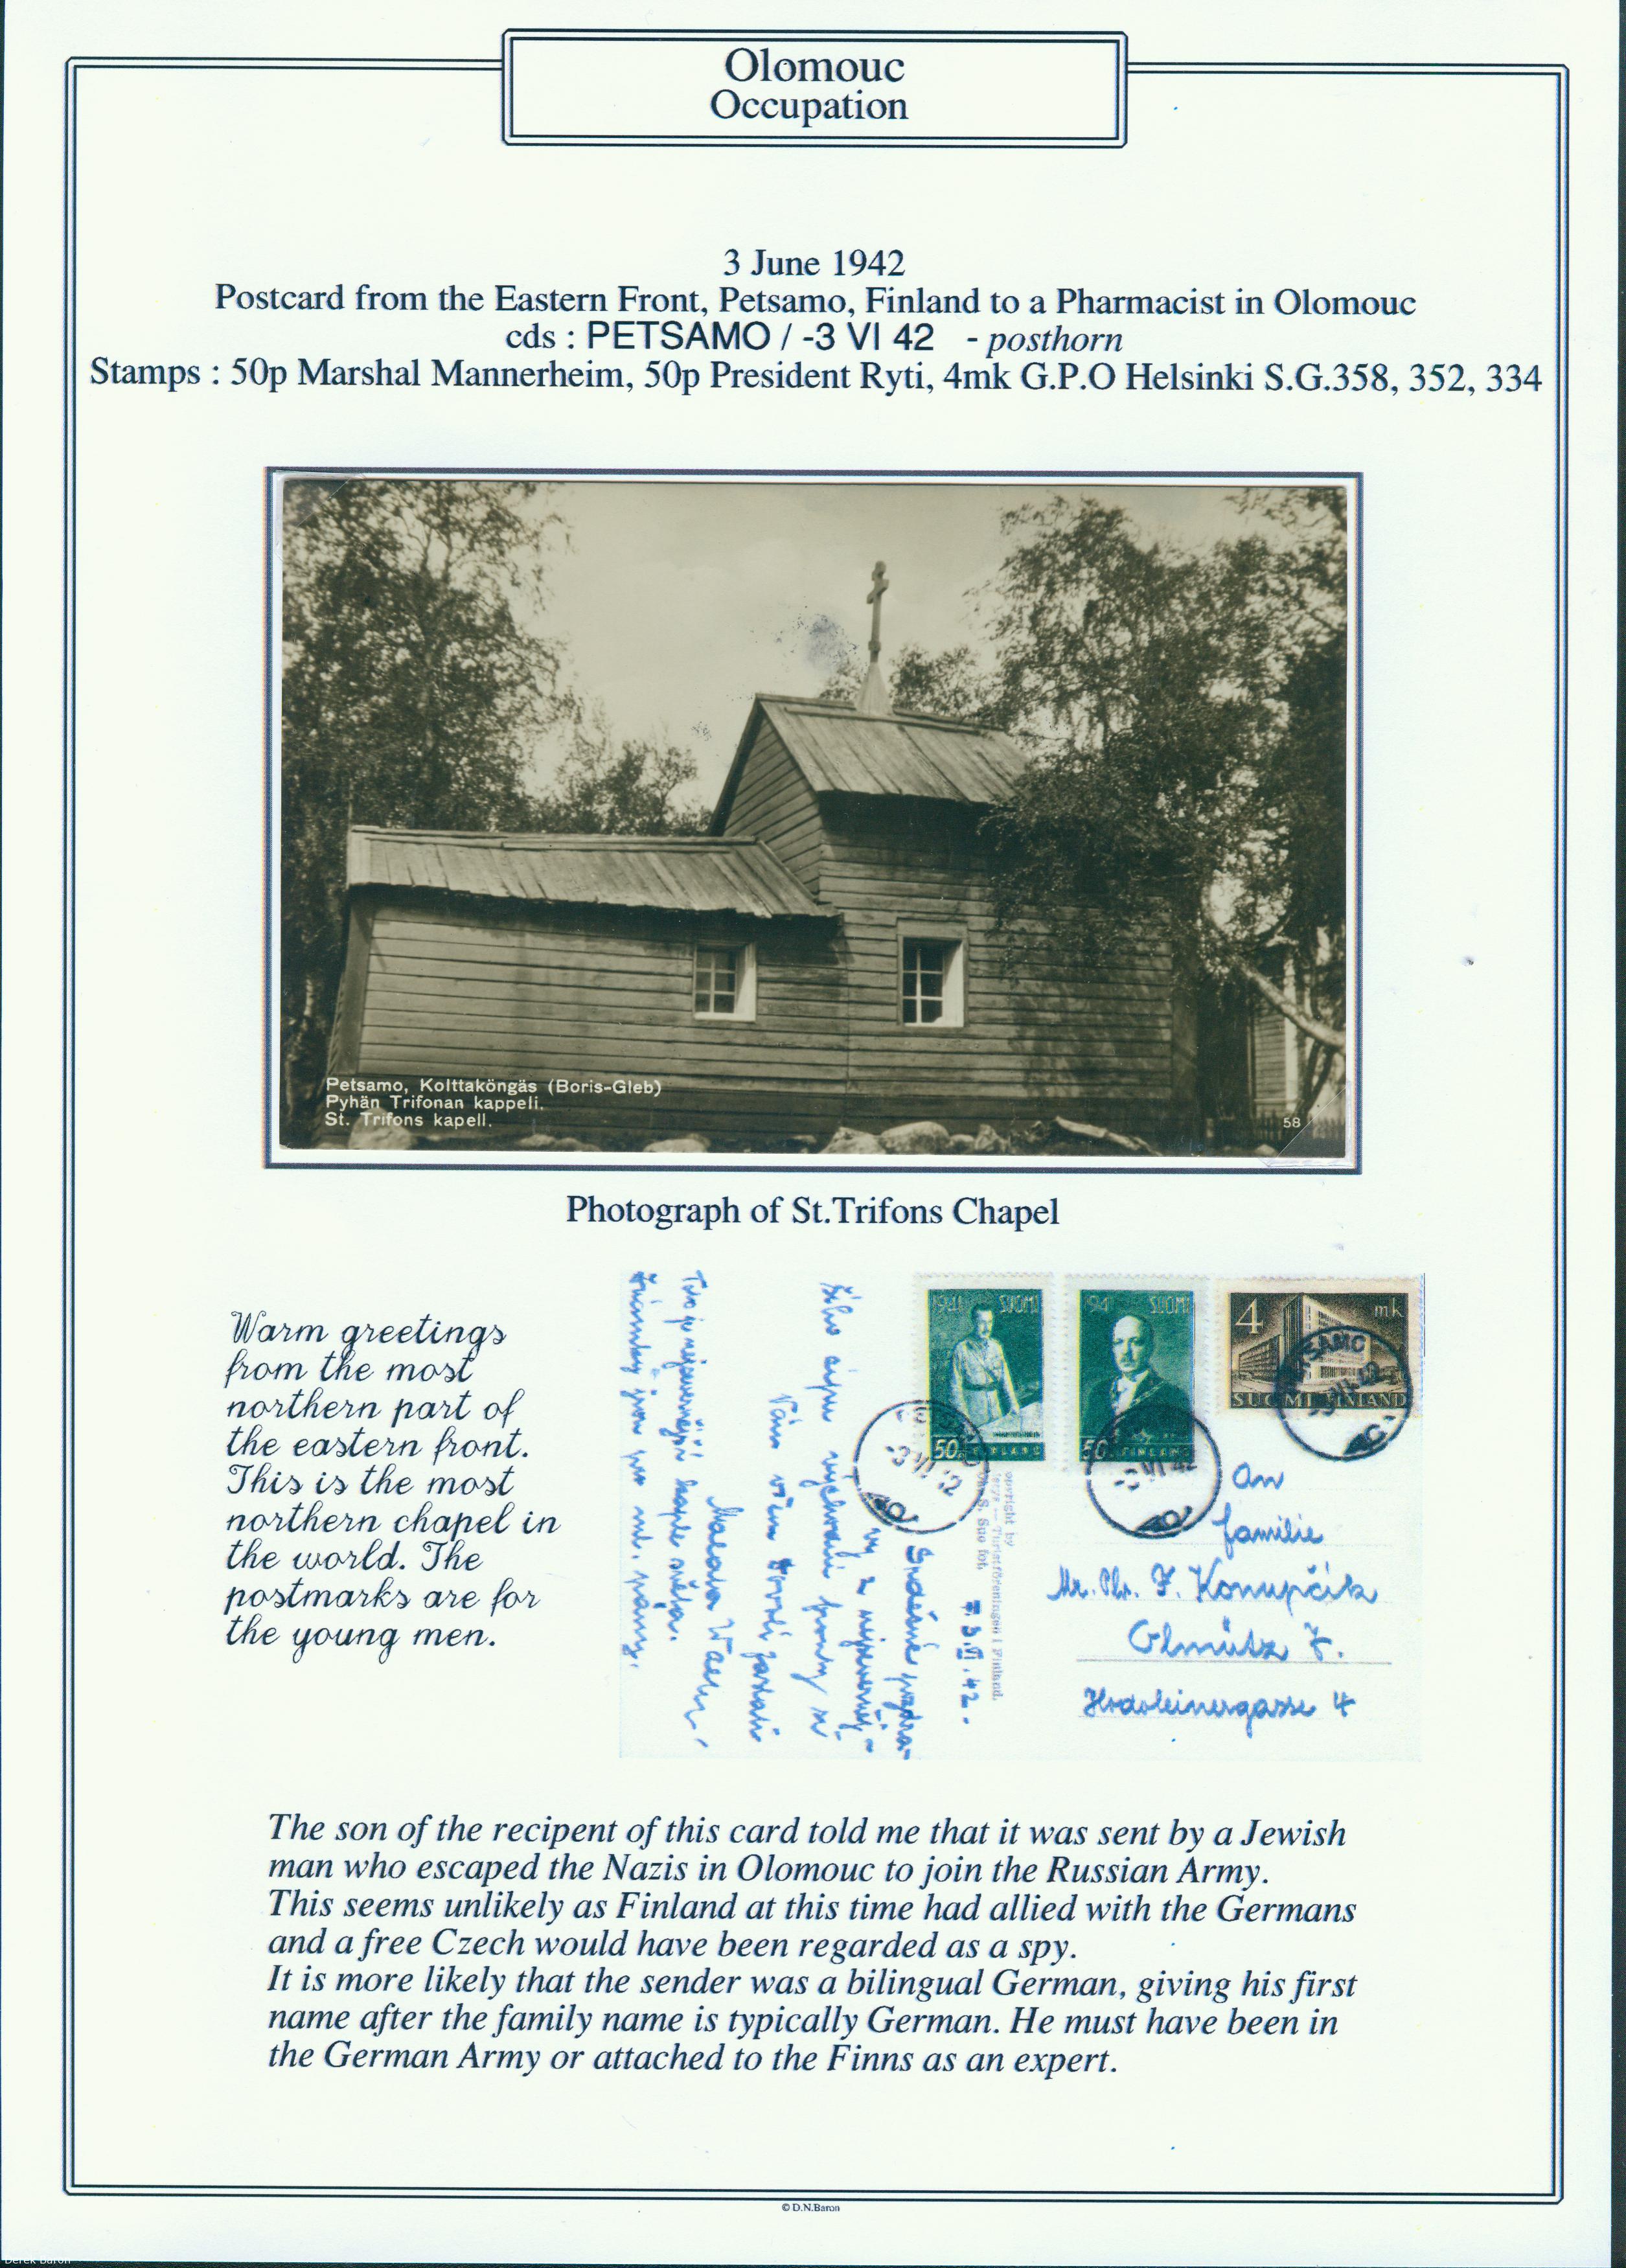 Olomouc
Occupation
3 June 1942
Postcard from the Eastern Front, Petsamo, Finland to a Pharmacist in Olomouc
cds : PETSAMO / -3 VI 42 - posthorn
Stamps : 50p Marshal Mannerheim, 50p President Ryti, 4mk G.P.O Helsinki S.G.358, 352, 334
Petsamo, Kolttaköngäs (Boris-Gleb)
Pyhän Trifonan kappeli.
St. Trifons kapell.
58
Photograph of St.Trifons Chapel
Warm greetings
from the most
northern part of
the eastern front.
This is the most
northern chapel in
the world. The
postmarks are for
the young men.
1941 SUOMI
50 FINLAND
1941 SUOMI
50 FINLAND
4 mk
SUOMI FINLAND
PETSAMO
-3 VI 42
-3 VI 42
3.VI.42.
Srdečné pozdra-
vy z nejseverněj-
ší východní fronty
Vám všem
Toto je nejsevernější kaple světa.
Známky jsou pro ml. pány.
An
Familie
Mr. Ph. F. Konupčík
Olmütz
Hodoleinergasse 4
The son of the recipent of this card told me that it was sent by a Jewish
man who escaped the Nazis in Olomouc to join the Russian Army.
This seems unlikely as Finland at this time had allied with the Germans
and a free Czech would have been regarded as a spy.
It is more likely that the sender was a bilingual German, giving his first
name after the family name is typically German. He must have been in
the German Army or attached to the Finns as an expert.
© D.N.Baron
Derek Baron